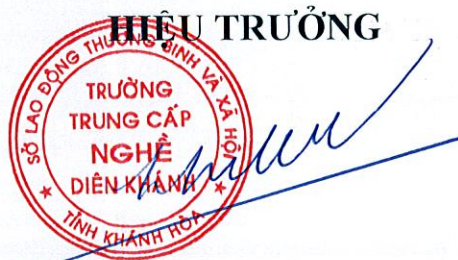 HIỆU TRƯỞNG
SỞ LAO ĐỘNG THƯƠNG BINH VÀ XÃ HỘI
TRƯỜNG
TRUNG CẤP
NGHỀ
DIÊN KHÁNH
TỈNH KHÁNH HÒA